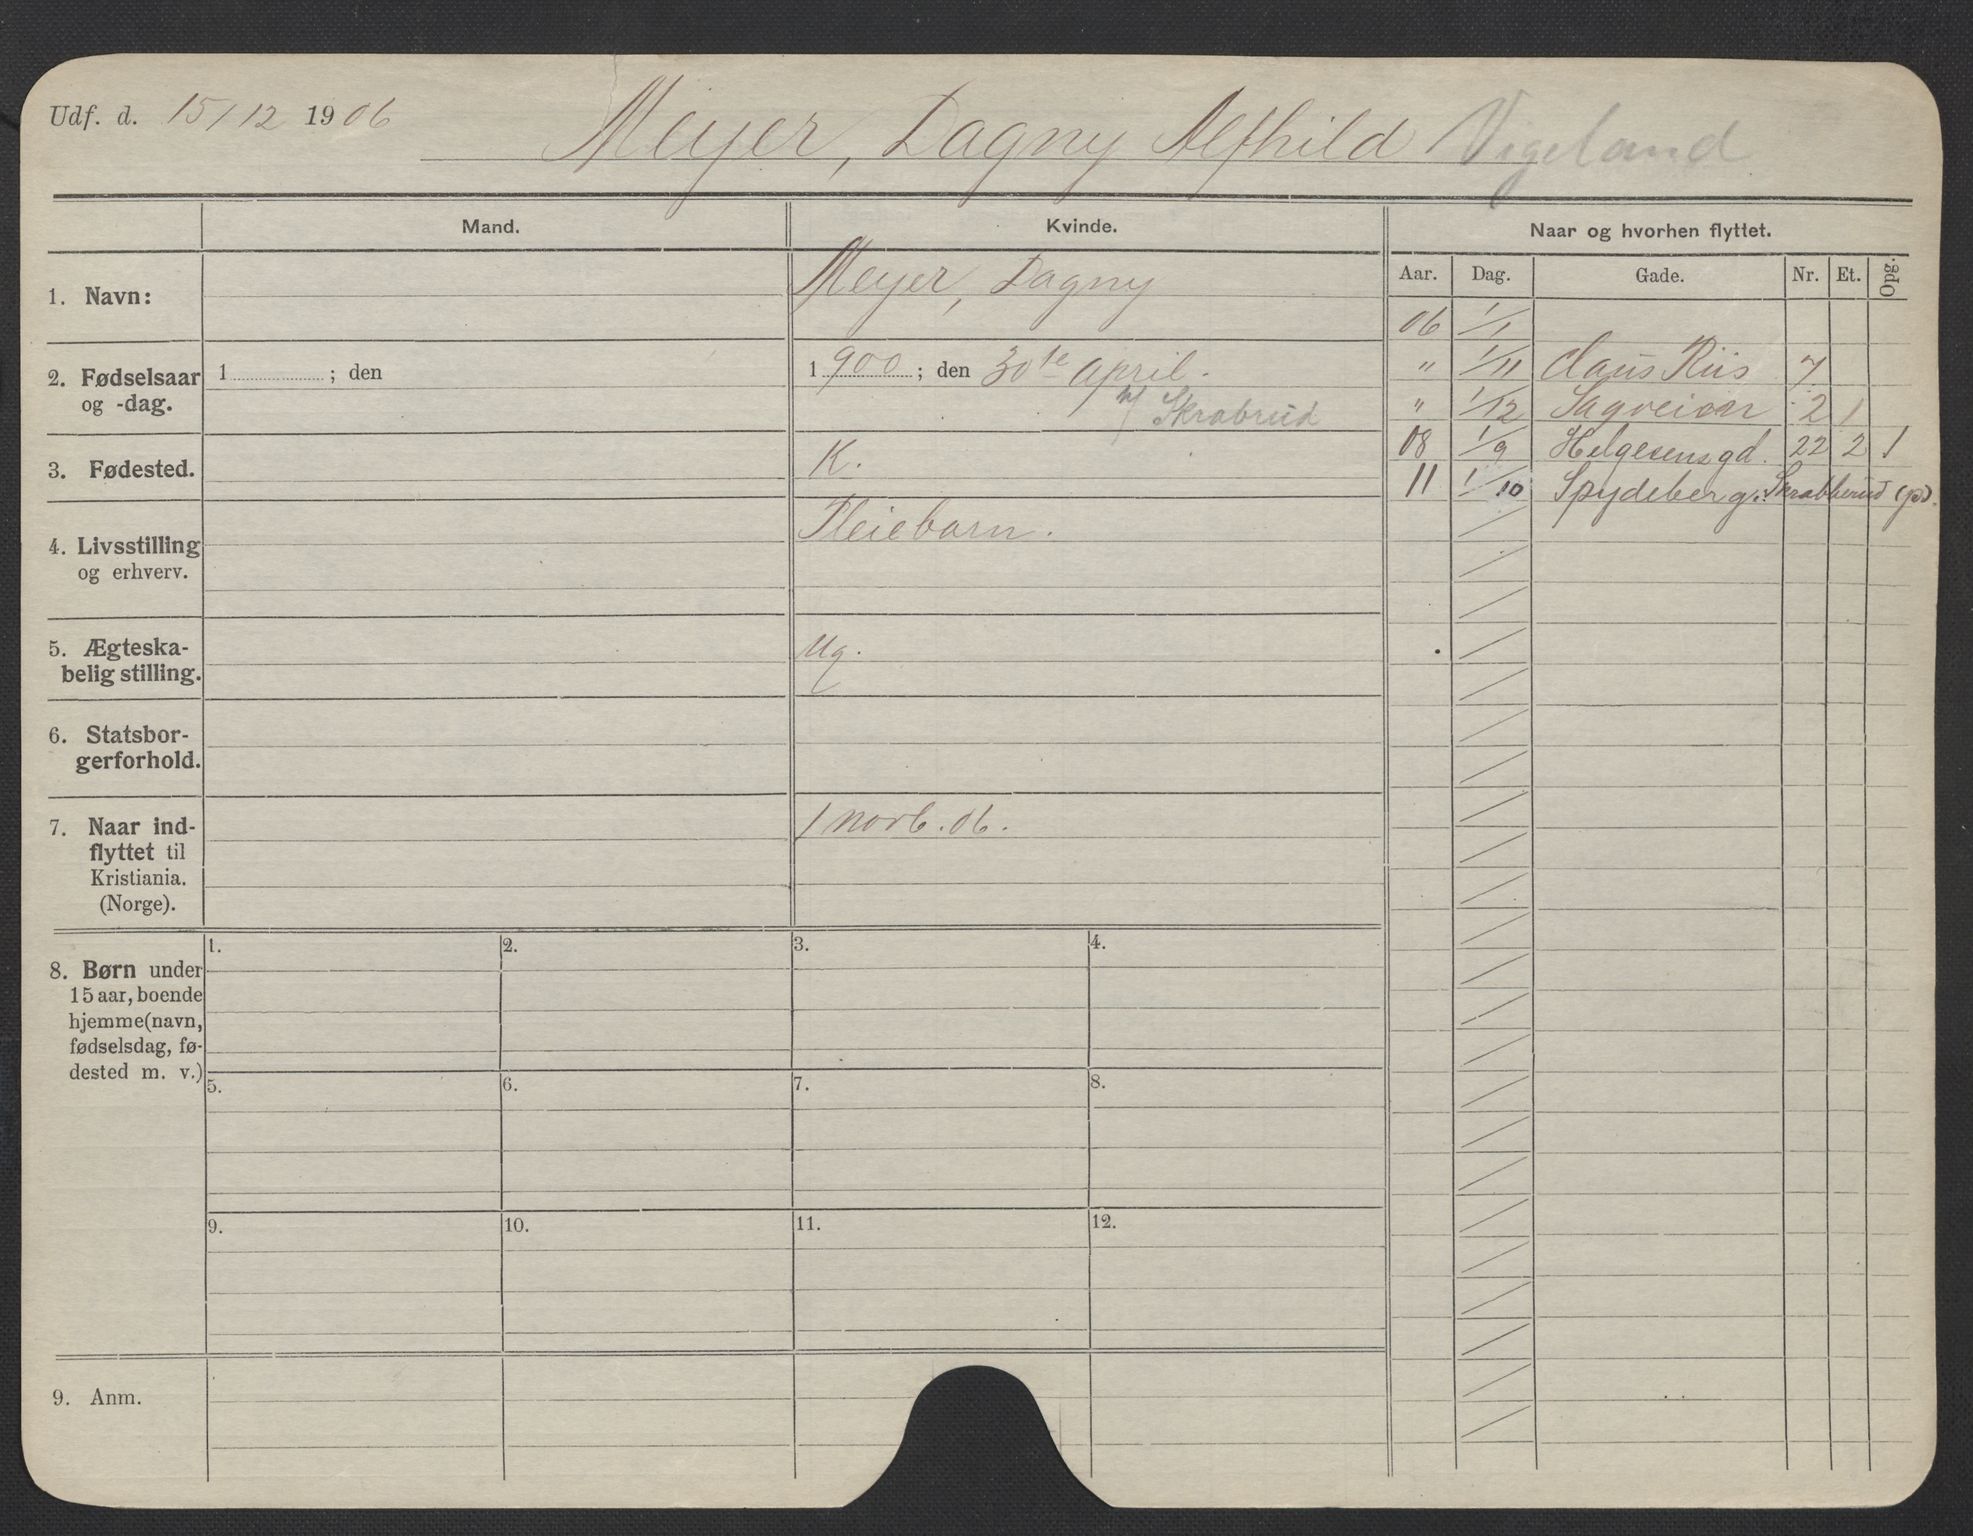 Udf. d. 15/12 1906
Meyer, Dagny Alfhild Vigeland
Mand.
Kvinde.
Naar og hvorhen flyttet.
Aar. Dag. Gade. Nr. Et. Opg.
1. Navn:
Meyer, Dagny
2. Fødselsaar
og -dag.
1 ; den
1 900 ; den 30te April.
Skrabrud
3. Fødested.
K.
4. Livsstilling
og erhverv.
Pleiebarn.
5. Ægteska-
belig stilling.
Ug.
6. Statsbor-
gerforhold.
7. Naar ind-
flyttet til
Kristiania.
(Norge).
1 novb. 06.
06 1/1
" 1/11 Claus Riis 7
" 1/12 Sagveien 2 1
08 1/9 Helgesens gd. 22 2 1
11 1/10 Spydeberg. Skrabberud (pd).
8. Børn under
15 aar, boende
hjemme (navn,
fødselsdag, fø-
dested m. v.)
1. 2. 3. 4.
5. 6. 7. 8.
9. 10. 11. 12.
9. Anm.